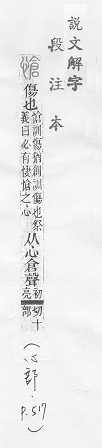 說文解字
段注本
愴
傷也
愴訓傷猶創訓傷也祭
義曰必有悽愴之心
从心倉聲
初亮切
十部
(心部.
P.517)